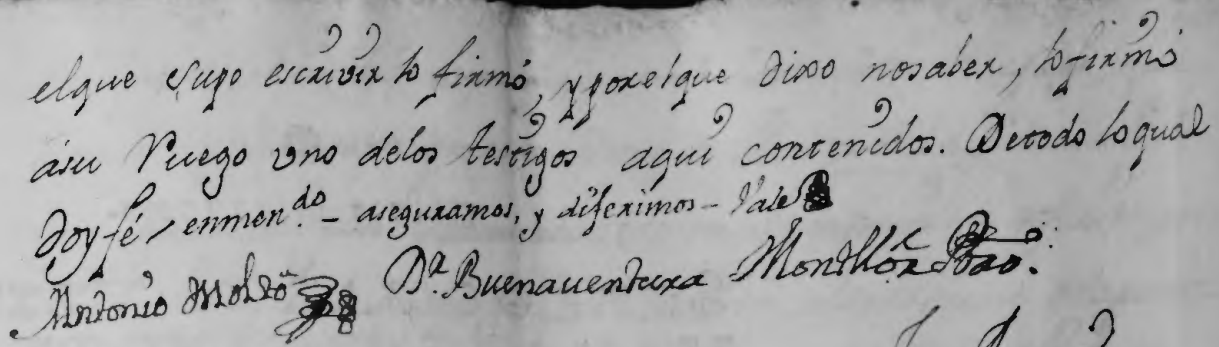 elque supo escrivir lo firmó, y porelque dixo nosaber, lo firmó
ásu Ruego uno delos testigos aqui contenidos. Detodo loqual
doy fé, enmen.do - aseguramos, y diferimos - Vale
Antonio Moltó D.r Buenaventura Montllor